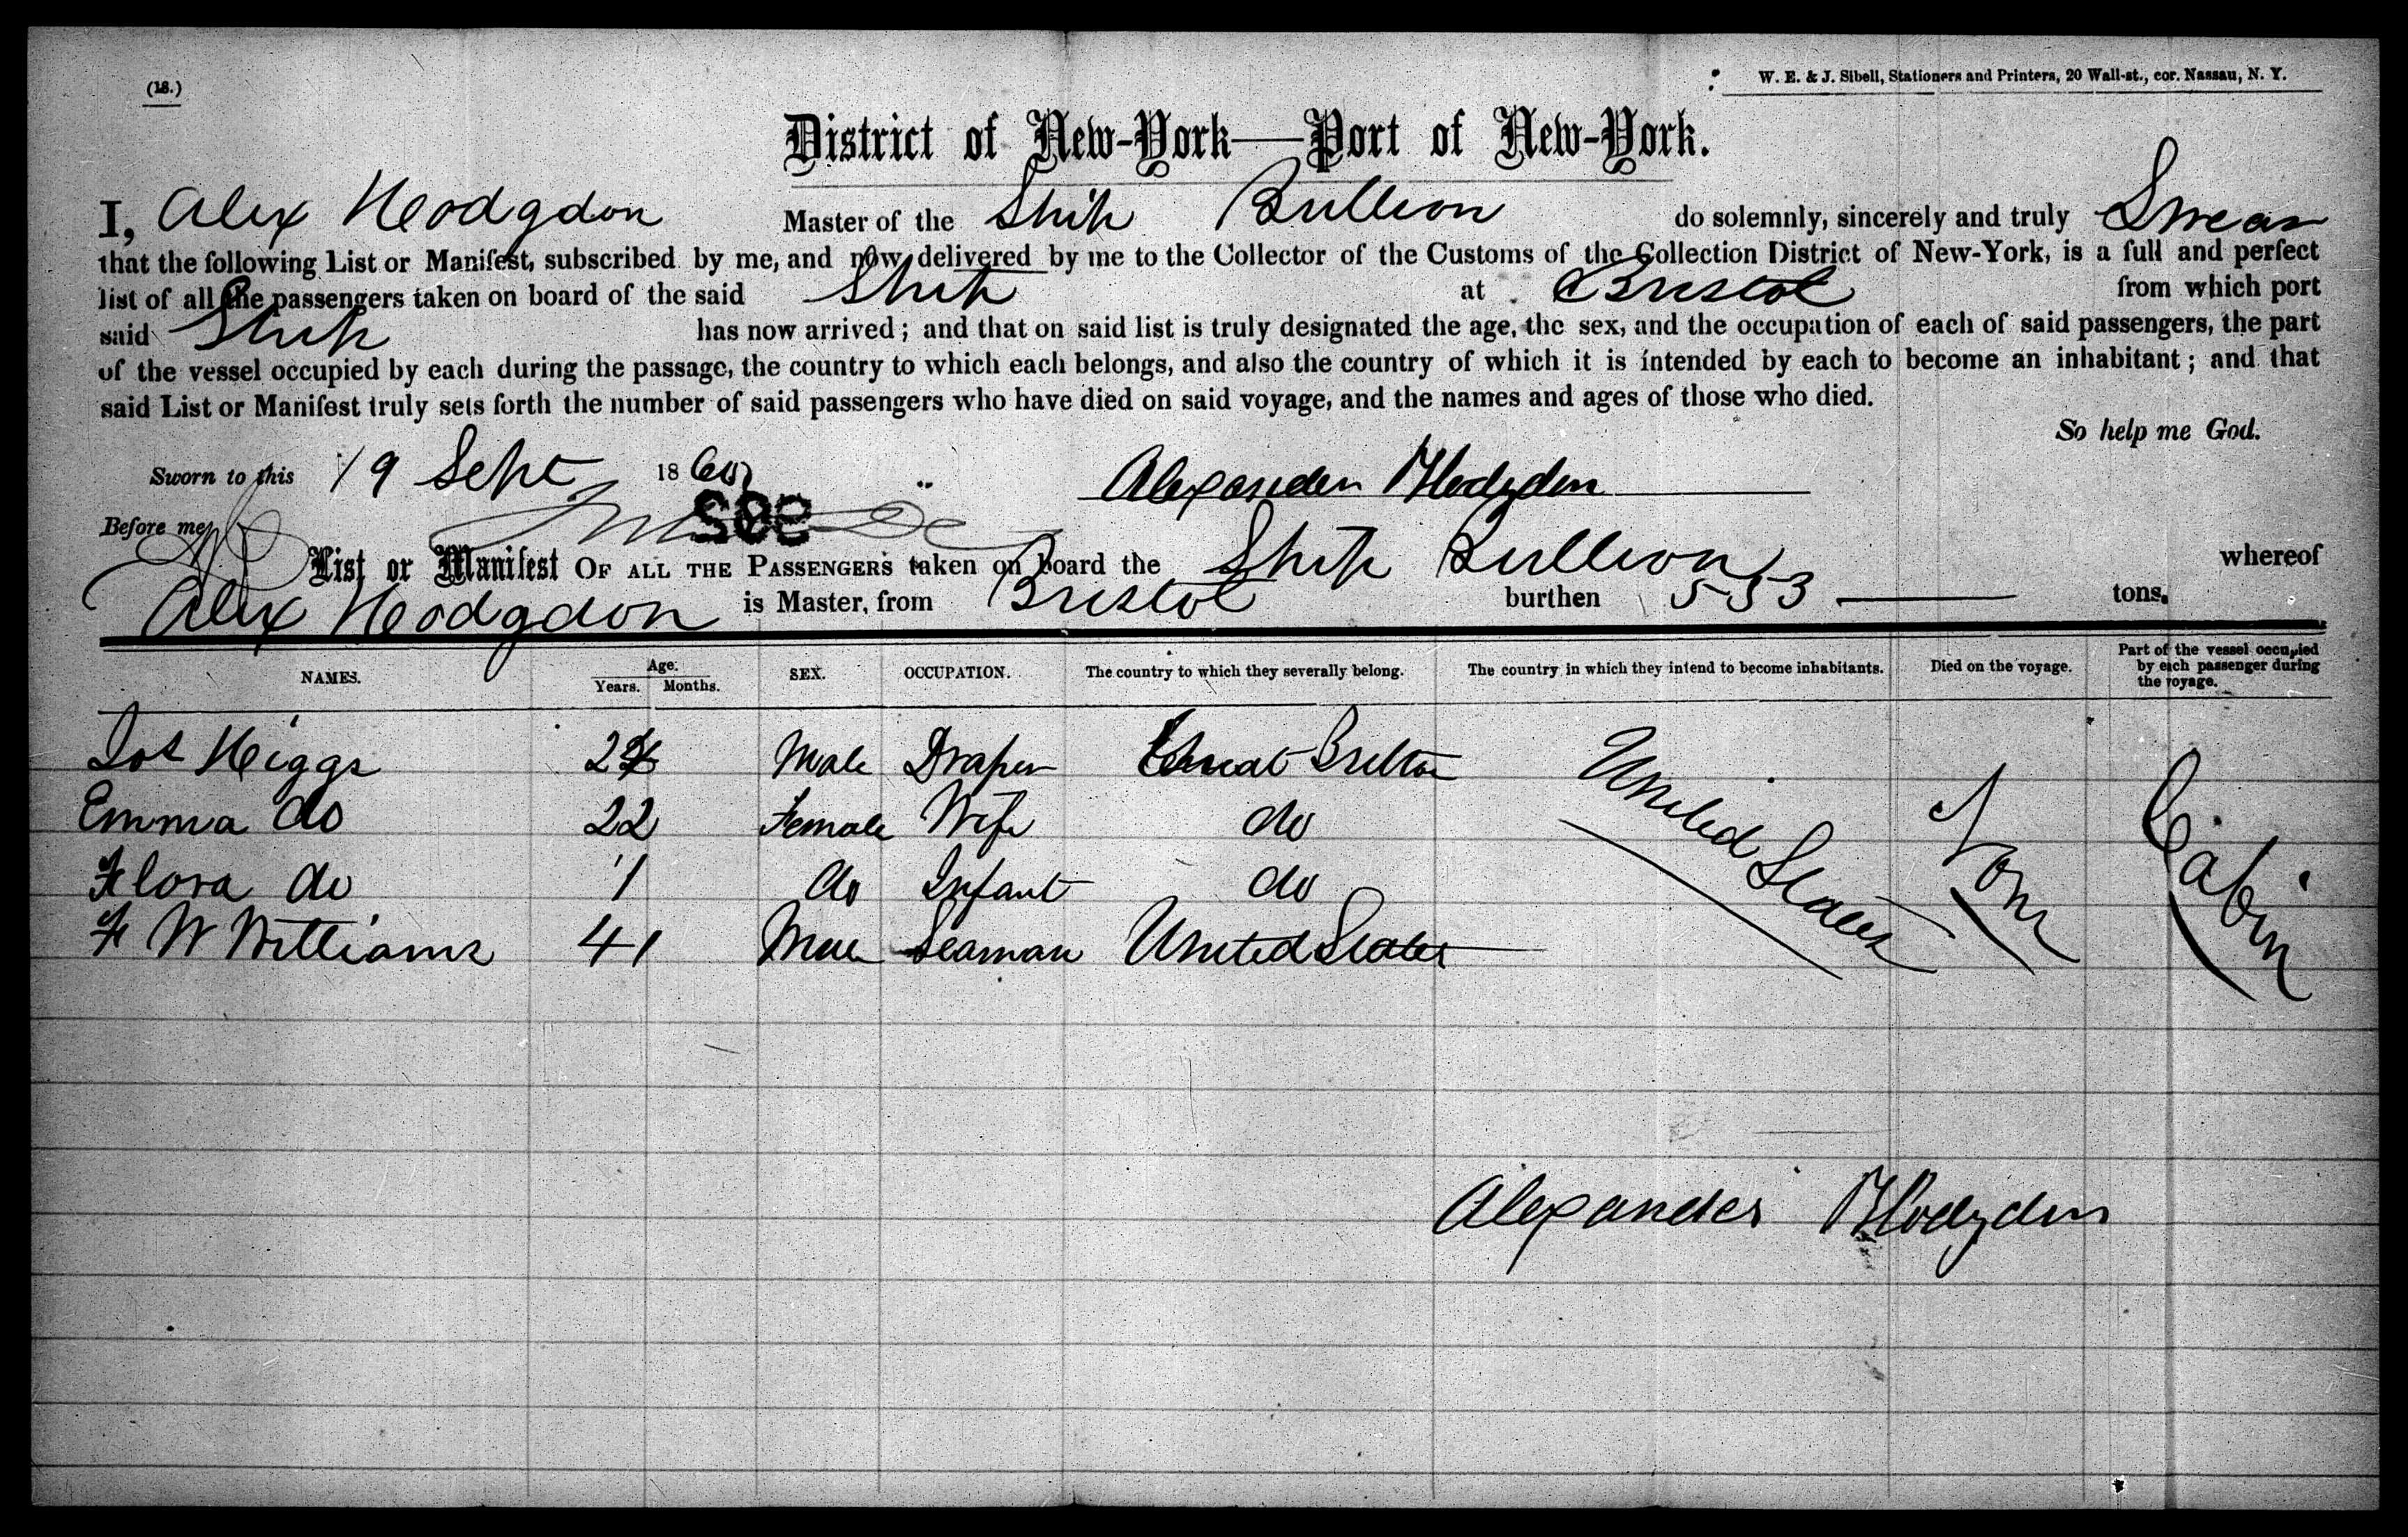 (18.)
W. E. & J. Sibell, Stationers and Printers, 20 Wall-st., cor. Nassau, N. Y.
District of New-York—Port of New-York.
I, Alex Hodgdon Master of the Ship Bullion do solemnly, sincerely and truly Swear
that the following List or Manifest, subscribed by me, and now delivered by me to the Collector of the Customs of the Collection District of New-York, is a full and perfect
list of all the passengers taken on board of the said Ship at Bristol from which port
said Ship has now arrived; and that on said list is truly designated the age, the sex, and the occupation of each of said passengers, the part
of the vessel occupied by each during the passage, the country to which each belongs, and also the country of which it is intended by each to become an inhabitant; and that
said List or Manifest truly sets forth the number of said passengers who have died on said voyage, and the names and ages of those who died.
So help me God.
Sworn to this 19 Sept 1860 Alexander Hodgdon
Before me
List or Manifest OF ALL THE PASSENGERS taken on board the Ship Bullion whereof
Alex Hodgdon is Master, from Bristol burthen 553 tons.
NAMES. Age. Years. Months. SEX. OCCUPATION. The country to which they severally belong. The country in which they intend to become inhabitants. Died on the voyage. Part of the vessel occupied by each passenger during the voyage.
Jos Higgs Male Draper Great Britton United States None Cabin
Emma do 22 Female Wife do
Flora do 1 do Infant do
F W Williams 41 Male Seaman United States
Alexander Hodgdon